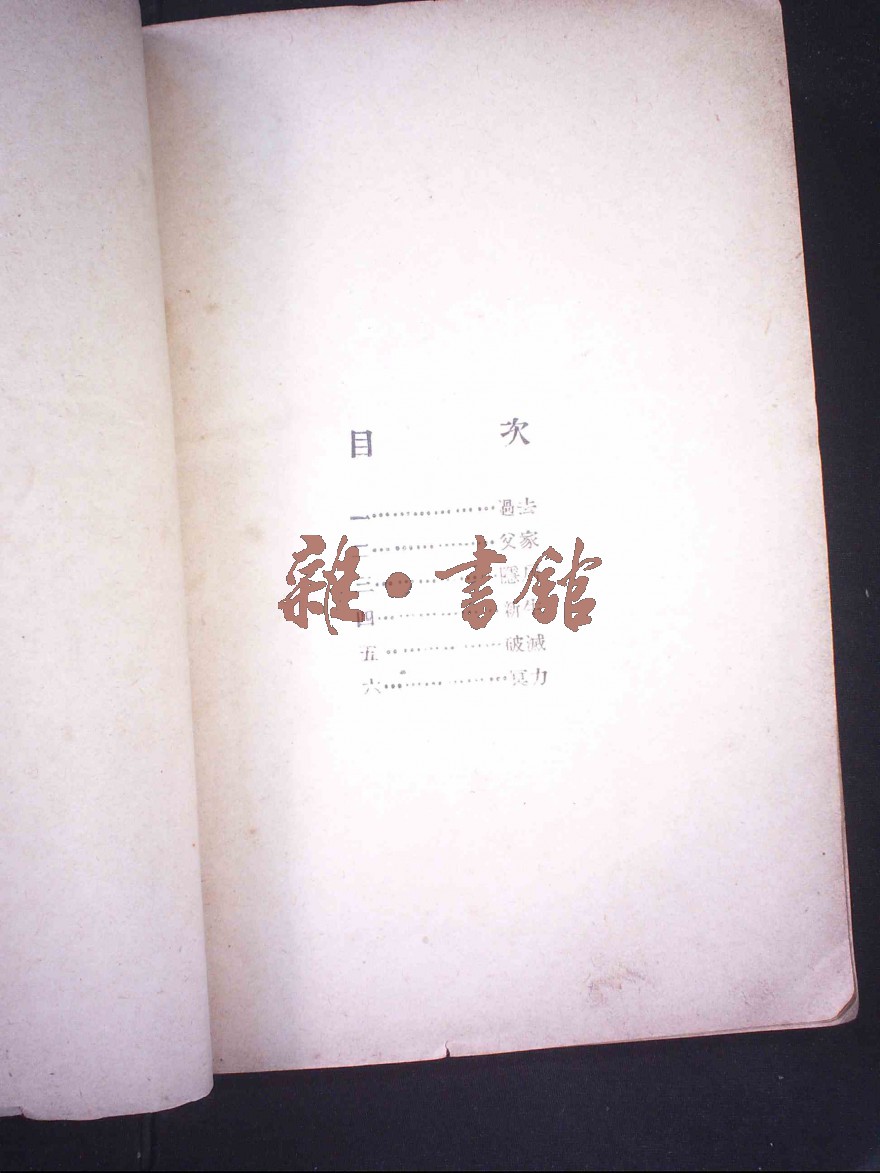 目 次
一………………過去
二………………父家
三………………隱
四………………新生
五………………破滅
六………………冥力
雜·書館